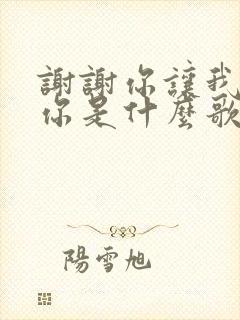 謝謝你讓我
你是什麼歌
陽雪旭